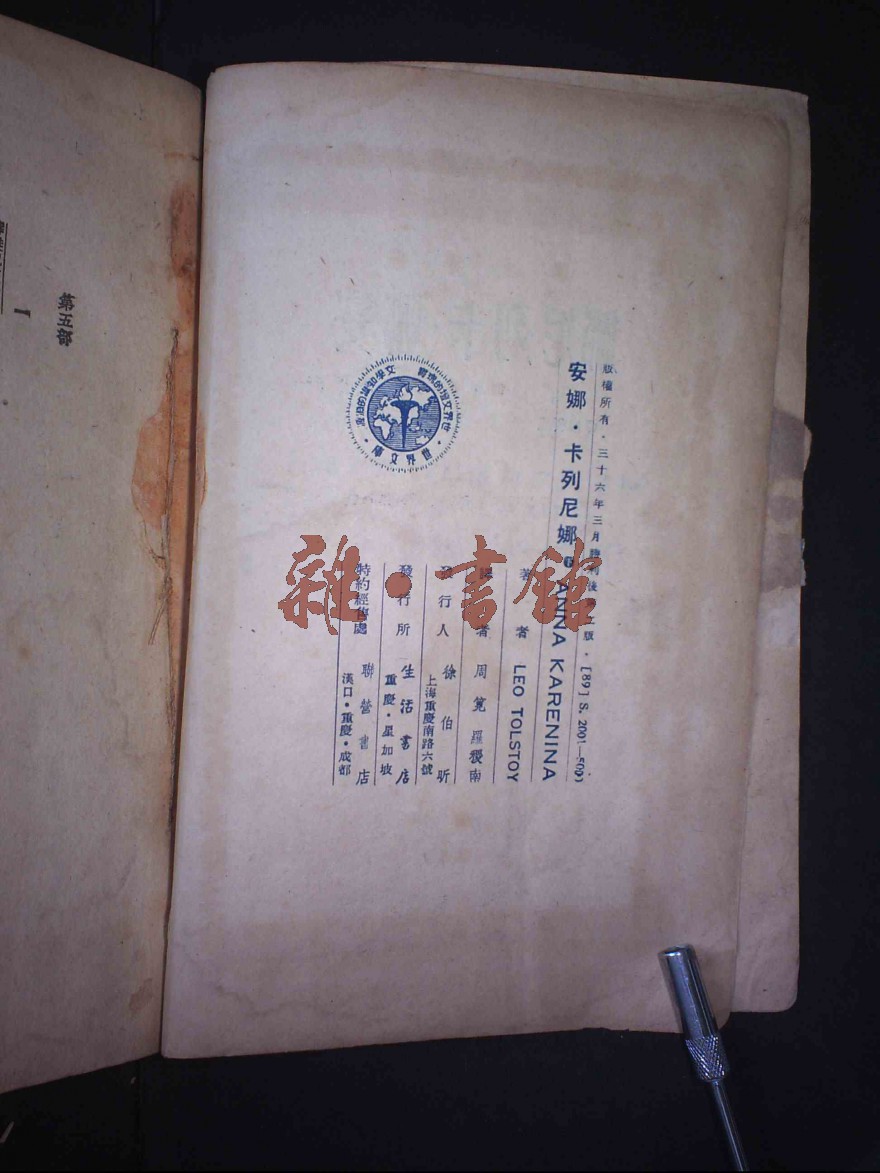 版權所有・三十六年三月勝利後第 版・[89] S. 2001—500
安娜・卡列尼娜 下 ANNA KARENINA
著者 LEO TOLSTOY
譯者 周筧 羅稷南
發行人 徐伯昕
上海重慶南路六號
發行所 生活書店
重慶・星加坡
特約經售處 聯營書店
漢口・重慶・成都
世界文庫
雜・書館
第五部
一